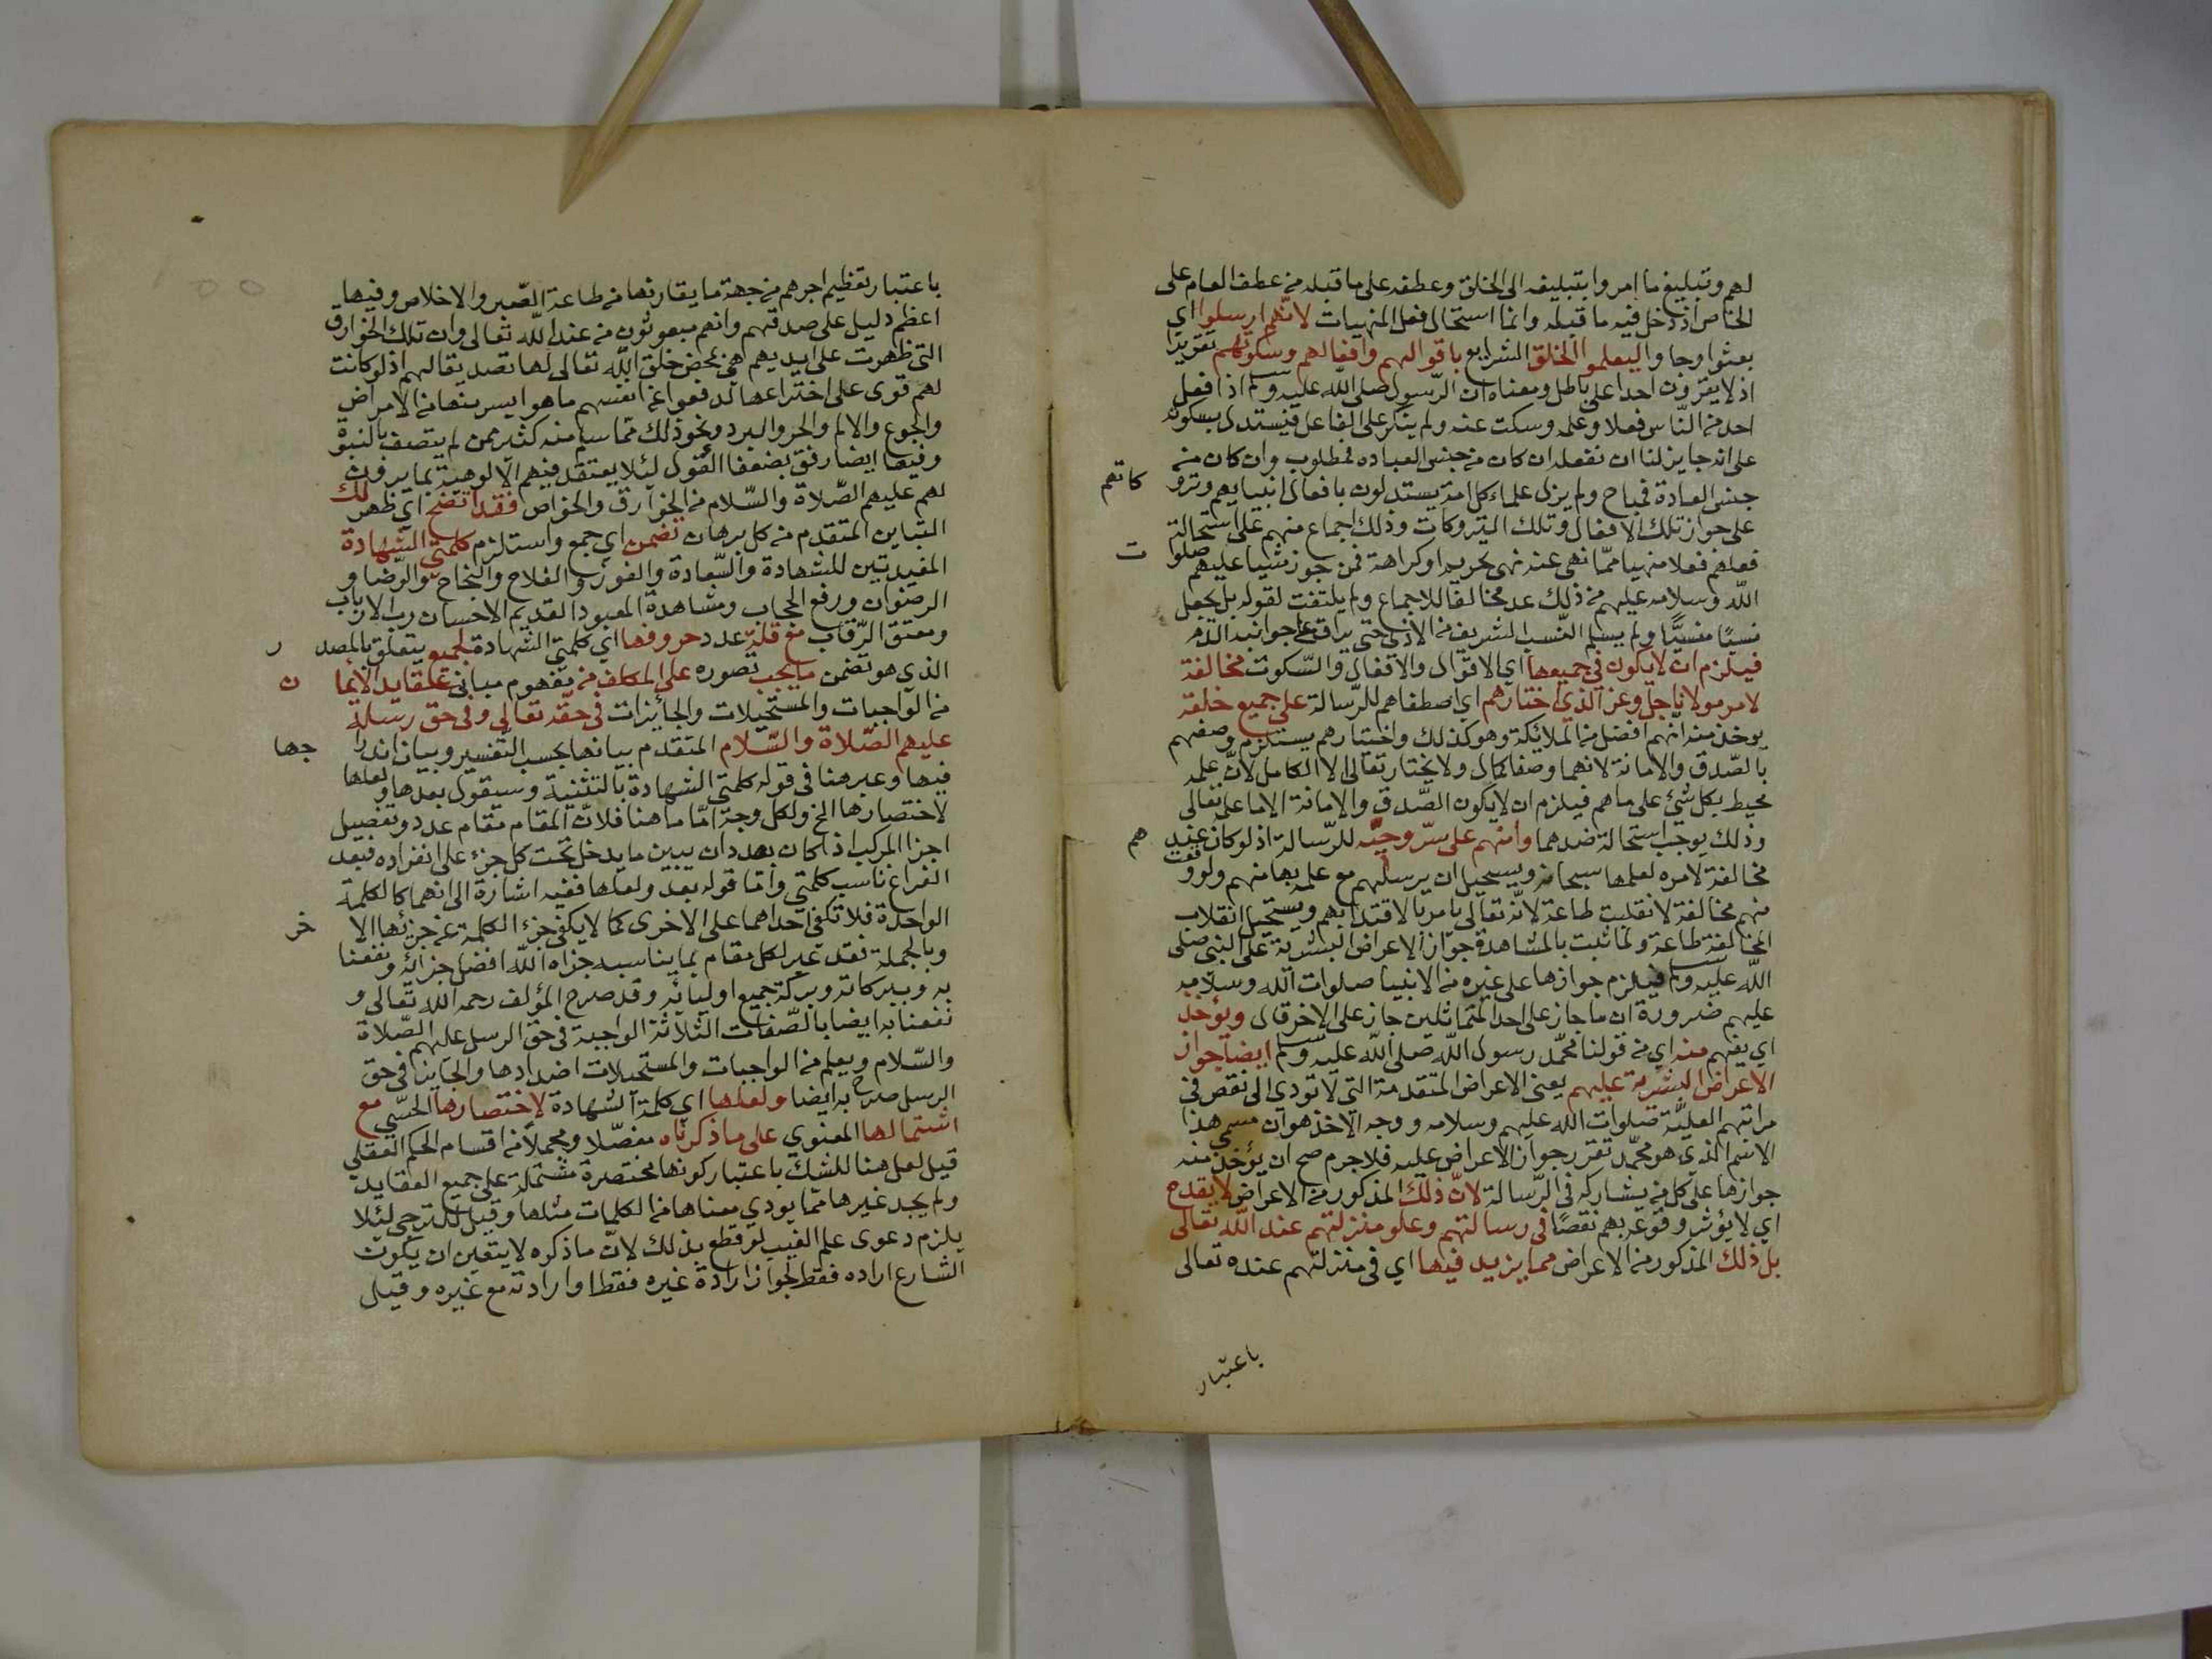 لهم وتبليغ ما امروا بتبليغه الى الخلق وعطفه على ما قبله من عطف العام على
الخاص اذ دخل فيه ما قبله وانما استحال فعل المنهيات لانهم ارسلوا اي
بعثوا وجاوا ليعلموا الخلق الشرايع باقوالهم وافعالهم وسكوتهم تقريرا
اذ لا يقرون احدا على باطل ومعناه ان الرسول صلى الله عليه وسلم اذا فعل
احد من الناس فعلا وعلمه وسكت عنه ولم ينكر على الفاعل فيستدل بسكوته
على انه جايز لنا ان نفعله ان كان من جنس العباده فمطلوب وان كان من
جنس العادة فمباح ولم يزل علماء كل امة يستدلون بافعال انبيايهم وتروكاتهم
على جواز تلك الافعال وتلك التروكات وذلك اجماع منهم على استحالة
فعلهم فعلا منهيا مما نهى عنه نهي تحريم او كراهة فمن جوز شيا عليهم صلوات
الله وسلامه عليهم من ذلك عد مخالفا للاجماع ولم يلتفت لقوله بل يجعل
نسيا منسيا ولم يسلم النسب الشريف من الاذى حتى يراق على جوانبه الدم
فيلزم ان لا يكون في جميعها اي الاقوال والافعال والسكوت مخالفة
لامر مولانا جل وعز الذي اختارهم اي اصطفاهم للرسالة على جميع خلقه
يوخذ منه انهم افضل من الملائكة وهو كذلك واختيارهم يستلزم وصفهم
بالصدق والامانة لانهما وصفا كمال ولا يختار تعالى الا الكامل لان علمه
محيط بكل شئ على ما هم فيلزم ان لا يكون الصدق والامانة الا ما علمه تعالى
وذلك يوجب استحالة ضدهما وامنهم على سر وحيه للرسالة اذ لو كان عندهم
مخالفة لامره لعلمها سبحانه ويستحيل ان يرسلهم مع علمه بها منهم ولو وقعت
منهم مخالفة لانقلبت طاعة لانه تعالى يامر بالاقتدا بهم ويستحيل انقلاب
المخالفة طاعة ولما ثبت بالمشاهدة جواز الاعراض البشرية على النبي صلى
الله عليه وسلم فيلزم جوازها على غيره من الانبيا صلوات الله وسلامه
عليهم ضرورة ان ما جاز على احد المتماثلين جاز على الاخر قال ويؤخذ
اي يفهم منه اي من قولنا محمد رسول الله صلى الله عليه وسلم ايضا جواز
الاعراض البشرية عليهم يعني الاعراض المتقدمة التي لا تودي الى نقص في
مراتبهم العلية صلوات الله عليهم وسلامه ووجه الاخذ هو ان مسمى هذا
الاسم الذي هو محمد تقرر جواز الاعراض عليه فلا جرم صح ان يؤخذ منه
جوازها على كل من يشاركه في الرسالة لان ذلك المذكور من الاعراض لا يقدح
اي لا يؤثر وقوعه بهم نقصا في رسالتهم وعلو منزلتهم عند الله تعالى
بل ذلك المذكور من الاعراض مما يزيد فيها اي في منزلتهم عنده تعالى
باعتبار
باعتبار تعظيم اجرهم من جهة ما يقارنها من طاعة الصبر والاخلاص وفيها
اعظم دليل على صدقهم وانهم مبعوثون من عند الله تعالى وان تلك الخوارق
التي ظهرت على ايديهم هي بمحض خلق الله تعالى لها تصديقا لهم اذ لو كانت
لهم قوى على اختراعها لدفعوا عن انفسهم ما هو ايسر منها من الامراض
والجوع والالم والحر والبرد ونحو ذلك مما سلم منه كثير ممن لم يتصف بالنبوة
وفيها ايضا رفق بضعفا العقول لئلا يعتقد فيهم الالوهية بما يرون
لهم عليهم الصلاة والسلام من الخوارق والخواص فقد اتضح اي ظهر لك
التباين المتقدم من كل برهان تضمن اي جمع واستلزم كلمتي الشهادة
المفيدتين للشهادة والسعادة والفوز والفلاح والنجاح والرضا و
الرضوان ورفع الحجاب ومشاهدة المعبود القديم الاحسان رب الارباب
ومعتق الرقاب مع قلة عدد حروفها اي كلمتي الشهادة لجميع يتعلق بالمصدر
الذي هو تضمن ما يجب تصوره على المكلف من مفهوم مباني عقايد الايمان
من الواجبات والمستحيلات والجايزات في حقه تعالى وفي حق رسله
عليهم الصلاة والسلام المتقدم بيانها بحسب التفسير وبيان اندراجها
فيها وعبر هنا في قوله كلمتي الشهادة بالتثنية وسيقول بعدها ولعلها
لاختصارها الخ ولكل وجه اما ما هنا فلان المقام مقام عدد وتفصيل
اجزا المركب اذ كان بصدد ان يبين ما يدخل تحت كل جزء على انفراده فبعد
الفراغ ناسب كلمتي واما قوله بعد ولعلها ففيه اشارة الى انهما كالكلمة
الواحدة فلا تكفي احداهما على الاخرى كما لا يكفي جزء الكلمة عن جزئها الاخر
وبالجملة فقد عبر لكل مقام بما يناسبه جزاه الله افضل جزائه ونفعنا
به وببركاته وبركة جميع اوليائه وقد صرح المؤلف رحمه الله تعالى و
نفعنا به ايضا بالصفات الثلاثة الواجبة في حق الرسل عليهم الصلاة
والسلام ويعلم من الواجبات والمستحيلات اضدادها والجايز في حق
الرسل صرح به ايضا ولعلها اي كلمة الشهادة لاختصارها الحسي مع
اشتمالها المعنوي على ما ذكرناه مفصلا ومجملا من اقسام الحكم العقلي
قيل لعل هنا للشك باعتبار كونها مختصرة مشتملة على جميع العقايد
ولم يجد غيرها مما يودي معناها من الكلمات مثلها وقيل للترجي لئلا
يلزم دعوى علم الغيب لو قطع بذلك لان ما ذكره لا يتعين ان يكون
الشارع اراده فقط لجواز ارادة غيره فقط او ارادته مع غيره وقيل